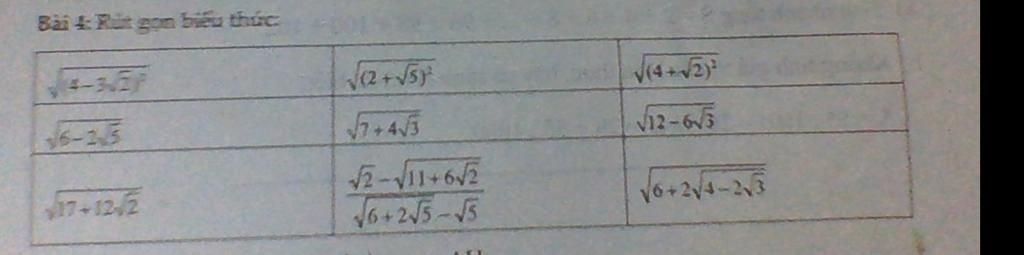 Bài 4: Rút gọn biểu thức:
√(4−3√2)² √(2+√5)² √(4+√2)²
√6−2√5 √7+4√3 √12−6√3
√17+12√2 √2−√11+6√2 / √6+2√5−√5 √6+2√4−2√3